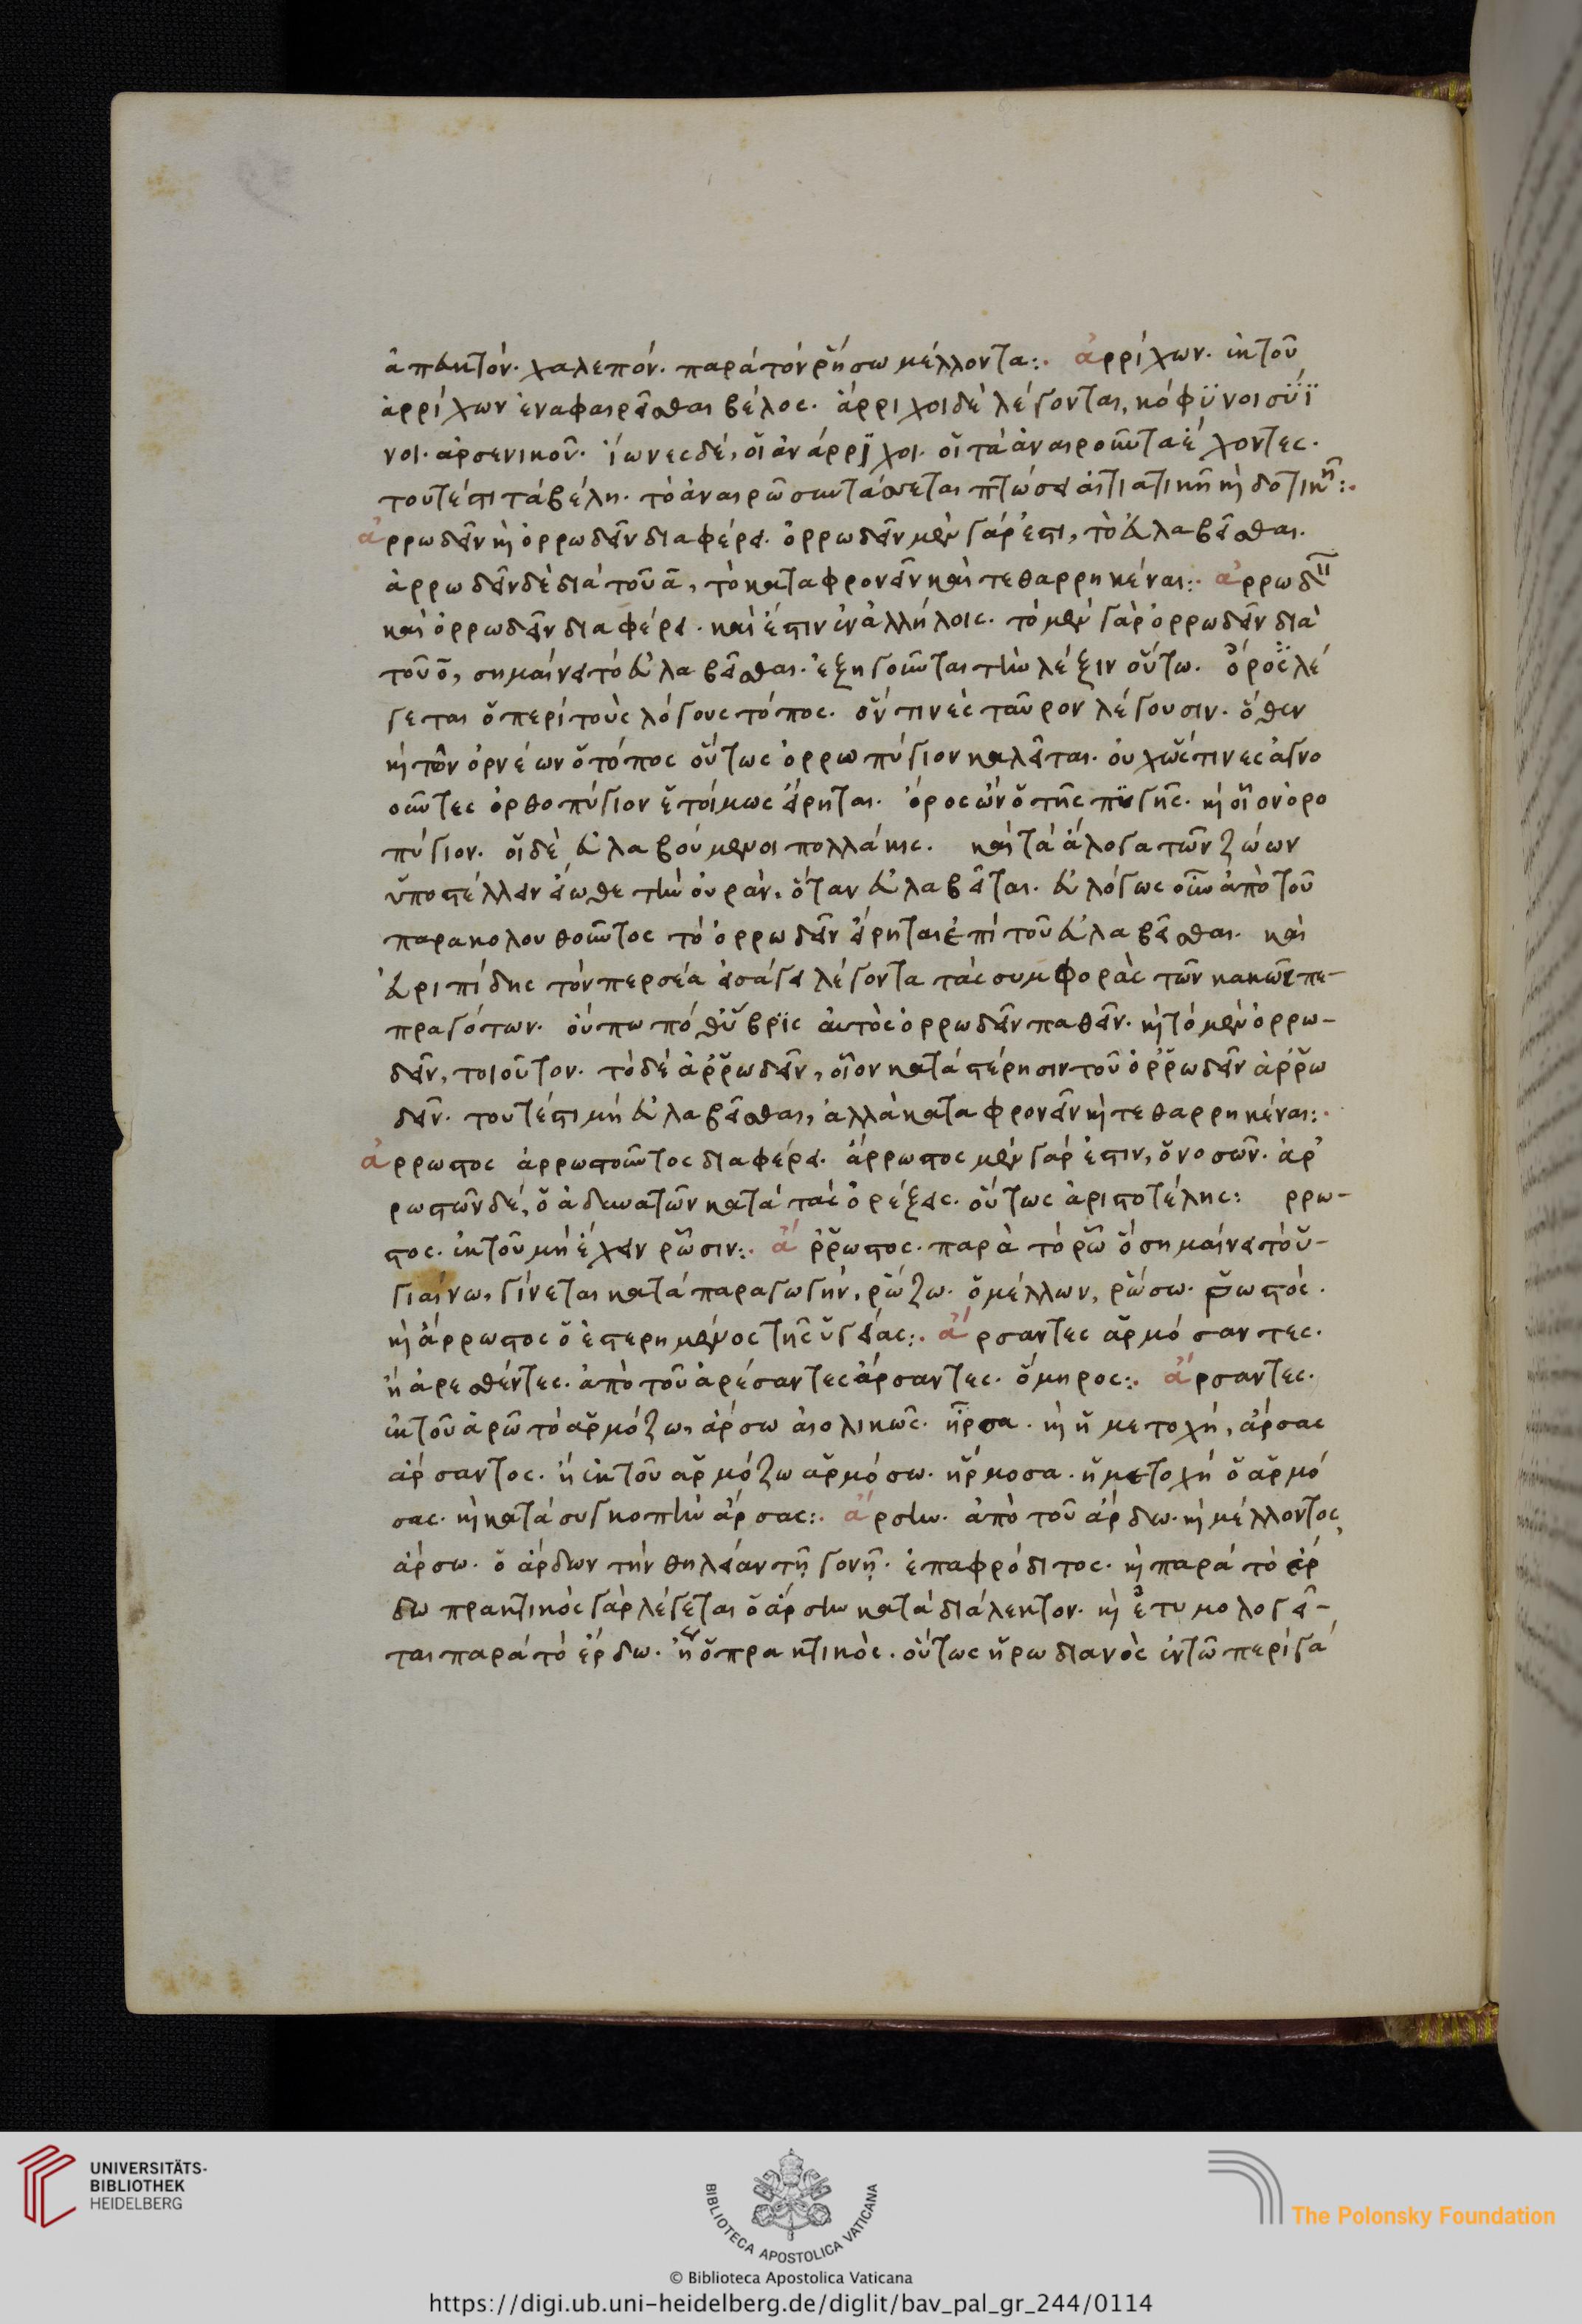 ἀπευκτόν. χαλεπόν. παρὰ τὸν ῥήσω μέλλοντα:. ἀρρίχων. ἐκ τοῦ
ἀρρίχων ἐναφαιρεῖσθαι βέλος. ἄρριχοι δὲ λέγονται, κόφϋνοι σύϊ
νοι. ἀρσενικοῦ. ἴωνες δὲ, οἱ ἀνάρριχοι. οἱ τὰ ἀναιροῦντα ἔχοντες.
τουτέστι τὰ βέλη. τὸ ἀναιρῶ συντάσσεται πτώσει αἰτιατικῆ κὶ δοτικῆ:.
ἀρρωδεῖν κὶ ὀρρωδεῖν διαφέρει. ὀρρωδεῖν μὲν γάρ ἐστι, τὸ εὐλαβεῖσθαι.
ἀρρωδεῖν δὲ διὰ τοῦ α, τὸ καταφρονεῖν καὶ τεθαρρηκέναι:. ἀρρωδεῖν
καὶ ὀρρωδεῖν διαφέρει. καὶ ἔστιν ἐν ἀλλήλοις. τὸ μὲν γὰρ ὀρρωδεῖν διὰ
τοῦ ο, σημαίνει τὸ εὐλαβεῖσθαι. ἐξηγοῦνται τὴν λέξιν οὕτω. ὄρος λέ
γεται ὁ περὶ τοὺς λόγους τόπος. ὅν τινὲς ταῦρον λέγουσιν. ὅθεν
κὶ τῶν ὀρνέων ὁ τόπος οὕτως ὀρρωπύγιον καλεῖται. οὐχ ὥς τινες ἀγνο
οῦντες ὀρθοπύγιον ἑτοίμως εἴρηται. ὄρος ὢν ὁ τῆς πϋγῆς. κὶ οἷον ὀρο
πύγιον. οἱ δὲ εὐλαβούμενοι πολλάκις. καὶ τὰ ἄλογα τῶν ζώων
ὑποστέλλειν εἴωθε τὴν οὐρὰν, ὅταν εὐλαβεῖται. εὐλόγως οὖν ἀπὸ τοῦ
παρακολουθοῦντος τὸ ὀρρωδεῖν εἴρηται ἐπὶ τοῦ εὐλαβεῖσθαι. καὶ
εὐριπίδης τὸν περσέα εἰσάγει λέγοντα τὰς συμφορὰς τῶν κακῶς πε-
πραγότων. οὔπω πόθ ὕβρϊς αὐτὸς ὀρρωδεῖν παθεῖν. κὶ τὸ μὲν ὀρρω-
δεῖν, τοιοῦτον. τὸ δὲ ἀῤῥωδεῖν, οἷον κατὰ στέρησιν τοῦ ὀῤῥωδεῖν ἀῤῥω
δεῖν. τουτέστι μὴ εὐλαβεῖσθαι, ἀλλὰ καταφρονεῖν κὶ τεθαρρηκέναι:.
ἄρρωστος ἀρρωστοῦντος διαφέρει. ἄρρωστος μὲν γάρ ἐστιν, ὁ νοσῶν. ἀρ
ρωστῶν δὲ, ὁ ἀδυνατῶν κατὰ τὰς ὀρέξεις. οὕτως ἀριστοτέλης: ρρω-
στος. ἐκ τοῦ μὴ ἔχειν ῥῶσιν:. ἄῤῥωστος. παρὰ τὸ ῥῶ ὃ σημαίνει τὸ ὑ-
γιαίνω, γίνεται κατὰ παραγωγὴν, ῥώζω. ὁ μέλλων, ῥώσω. ῥωστός.
κὶ ἄρρωστος ὁ ἐστερημένος τῆς ὑγείας:. ἄρσαντες ἁρμόσαντες.
ἢ ἀρεσθέντες. ἀπὸ τοῦ ἀρέσαντες ἄρσαντες. ὅμηρος:. ἄρσαντες.
ἐκ τοῦ ἀρῶ τὸ ἁρμόζω, ἄρσω αἰολικῶς. ἦρσα. κὶ ἡ μετοχὴ, ἄρσας
ἄρσαντος. ἢ ἐκ τοῦ ἁρμόζω ἁρμόσω. ἥρμοσα. ἡ μετοχὴ ὁ ἁρμό
σας. κὶ κατὰ συγκοπὴν ἄρσας:. ἄρσην. ἀπὸ τοῦ ἄρδην. κὶ μέλλοντος
ἄρσω. ὁ ἄρδων τὴν θηλείαν τῇ γονῇ. ἐπαφρόδιτος. κὶ παρὰ τὸ ἔρ
δω πρακτικὸς γὰρ λέγεται ὁ ἄρσην κατὰ διάλεκτον. κὶ ἐτυμολογεῖ-
ται παρὰ τὸ ἔρδω. ἢ ὁ πρακτικὸς. οὕτως ἡρωδιανὸς ἐν τῶ περὶ γά
UNIVERSITÄTS-
BIBLIOTHEK
HEIDELBERG
BIBLIOTECA APOSTOLICA VATICANA
The Polonsky Foundation
© Biblioteca Apostolica Vaticana
https://digi.ub.uni-heidelberg.de/diglit/bav_pal_gr_244/0114